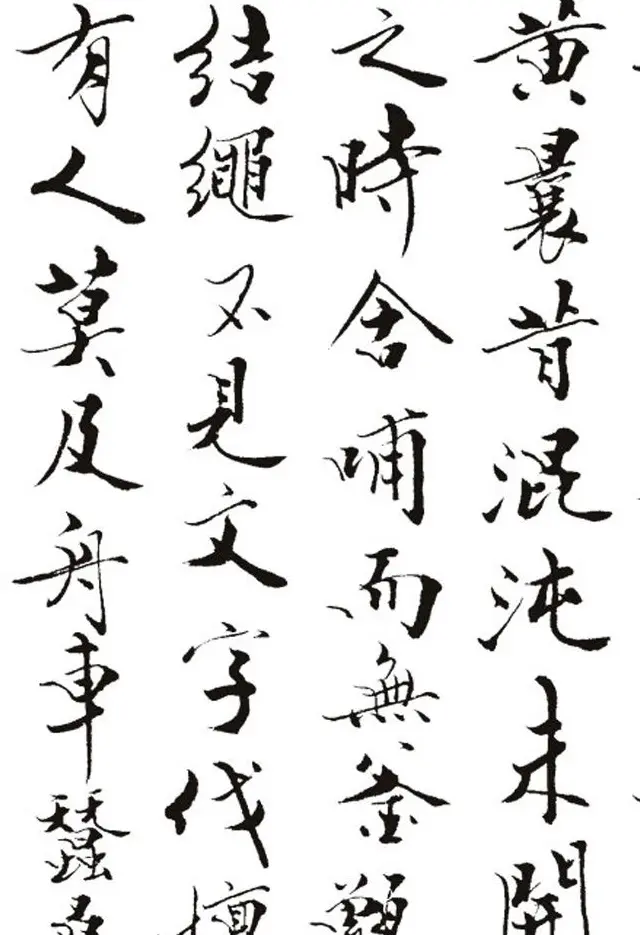 黄曩昔混沌未開
之時舍哺而無釜
結繩不見文字伐
有人莫及舟車蠶